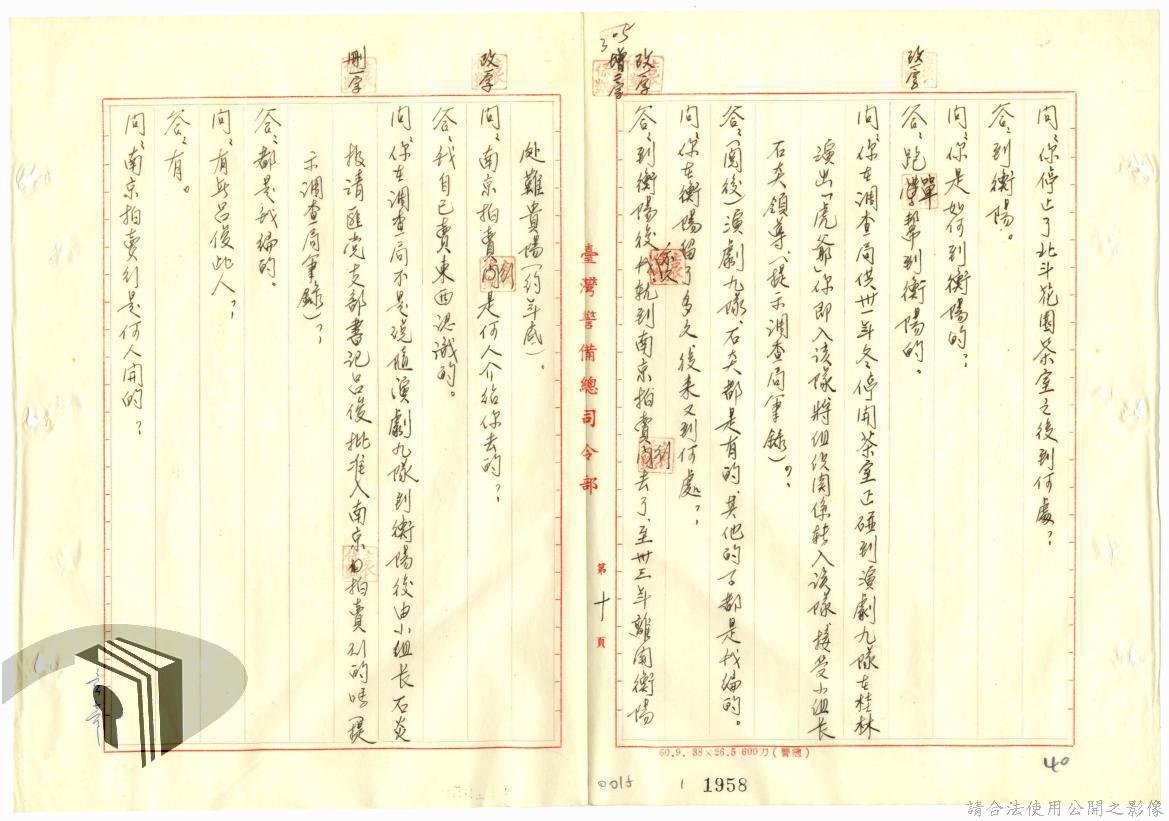 改一字
問：你停止了北斗花園茶室之後到何處？
答：到衡陽。
問：你是如何到衡陽的？
答：跑單幫到衡陽的。
問：你在調查局供卅一年冬停開茶室正碰到演劇九隊在桂林
演出「虎爺」你即入該隊將組織關係轉入該隊接受小組長
石炎領導、（提示調查局筆錄）？
答：（閱後）演劇九隊、石炎都是有的、其他的了都是我編的。
問：你在衡陽留了多久後來又到何處？
改一字
增二字
答：到衡陽後我就到南京拍賣行去了、至卅三年離開衡陽
臺灣警備總司令部
第十頁
處難貴陽（約年底）。
改一字
問：南京拍賣行是何人介紹你去的？
答：我自己賣東西認識的。
問：你在調查局不是說隨演劇九隊到衡陽後由小組長石炎
刪一字
報請匪黨支部書記呂俊批准入南京拍賣行的嗎（提
示調查局筆錄）？
答：都是我編的。
問：有無呂俊此人？
答：有。
問：南京拍賣行是何人開的？
60.9. 38×26.5 600刀（警總）
0015
1958
40
請合法使用公開之影像